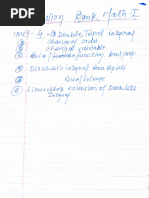 Question Bank Math-I
Unit - 4 - ① Double, Tripal integral
② Change of order
③ Change of variable
④ Beta, Gamma function and prop
⑤ Dirichlet's integral for Appli
Area/Volume
⑥ Liouville's Extension of Dirichlet's
Integral